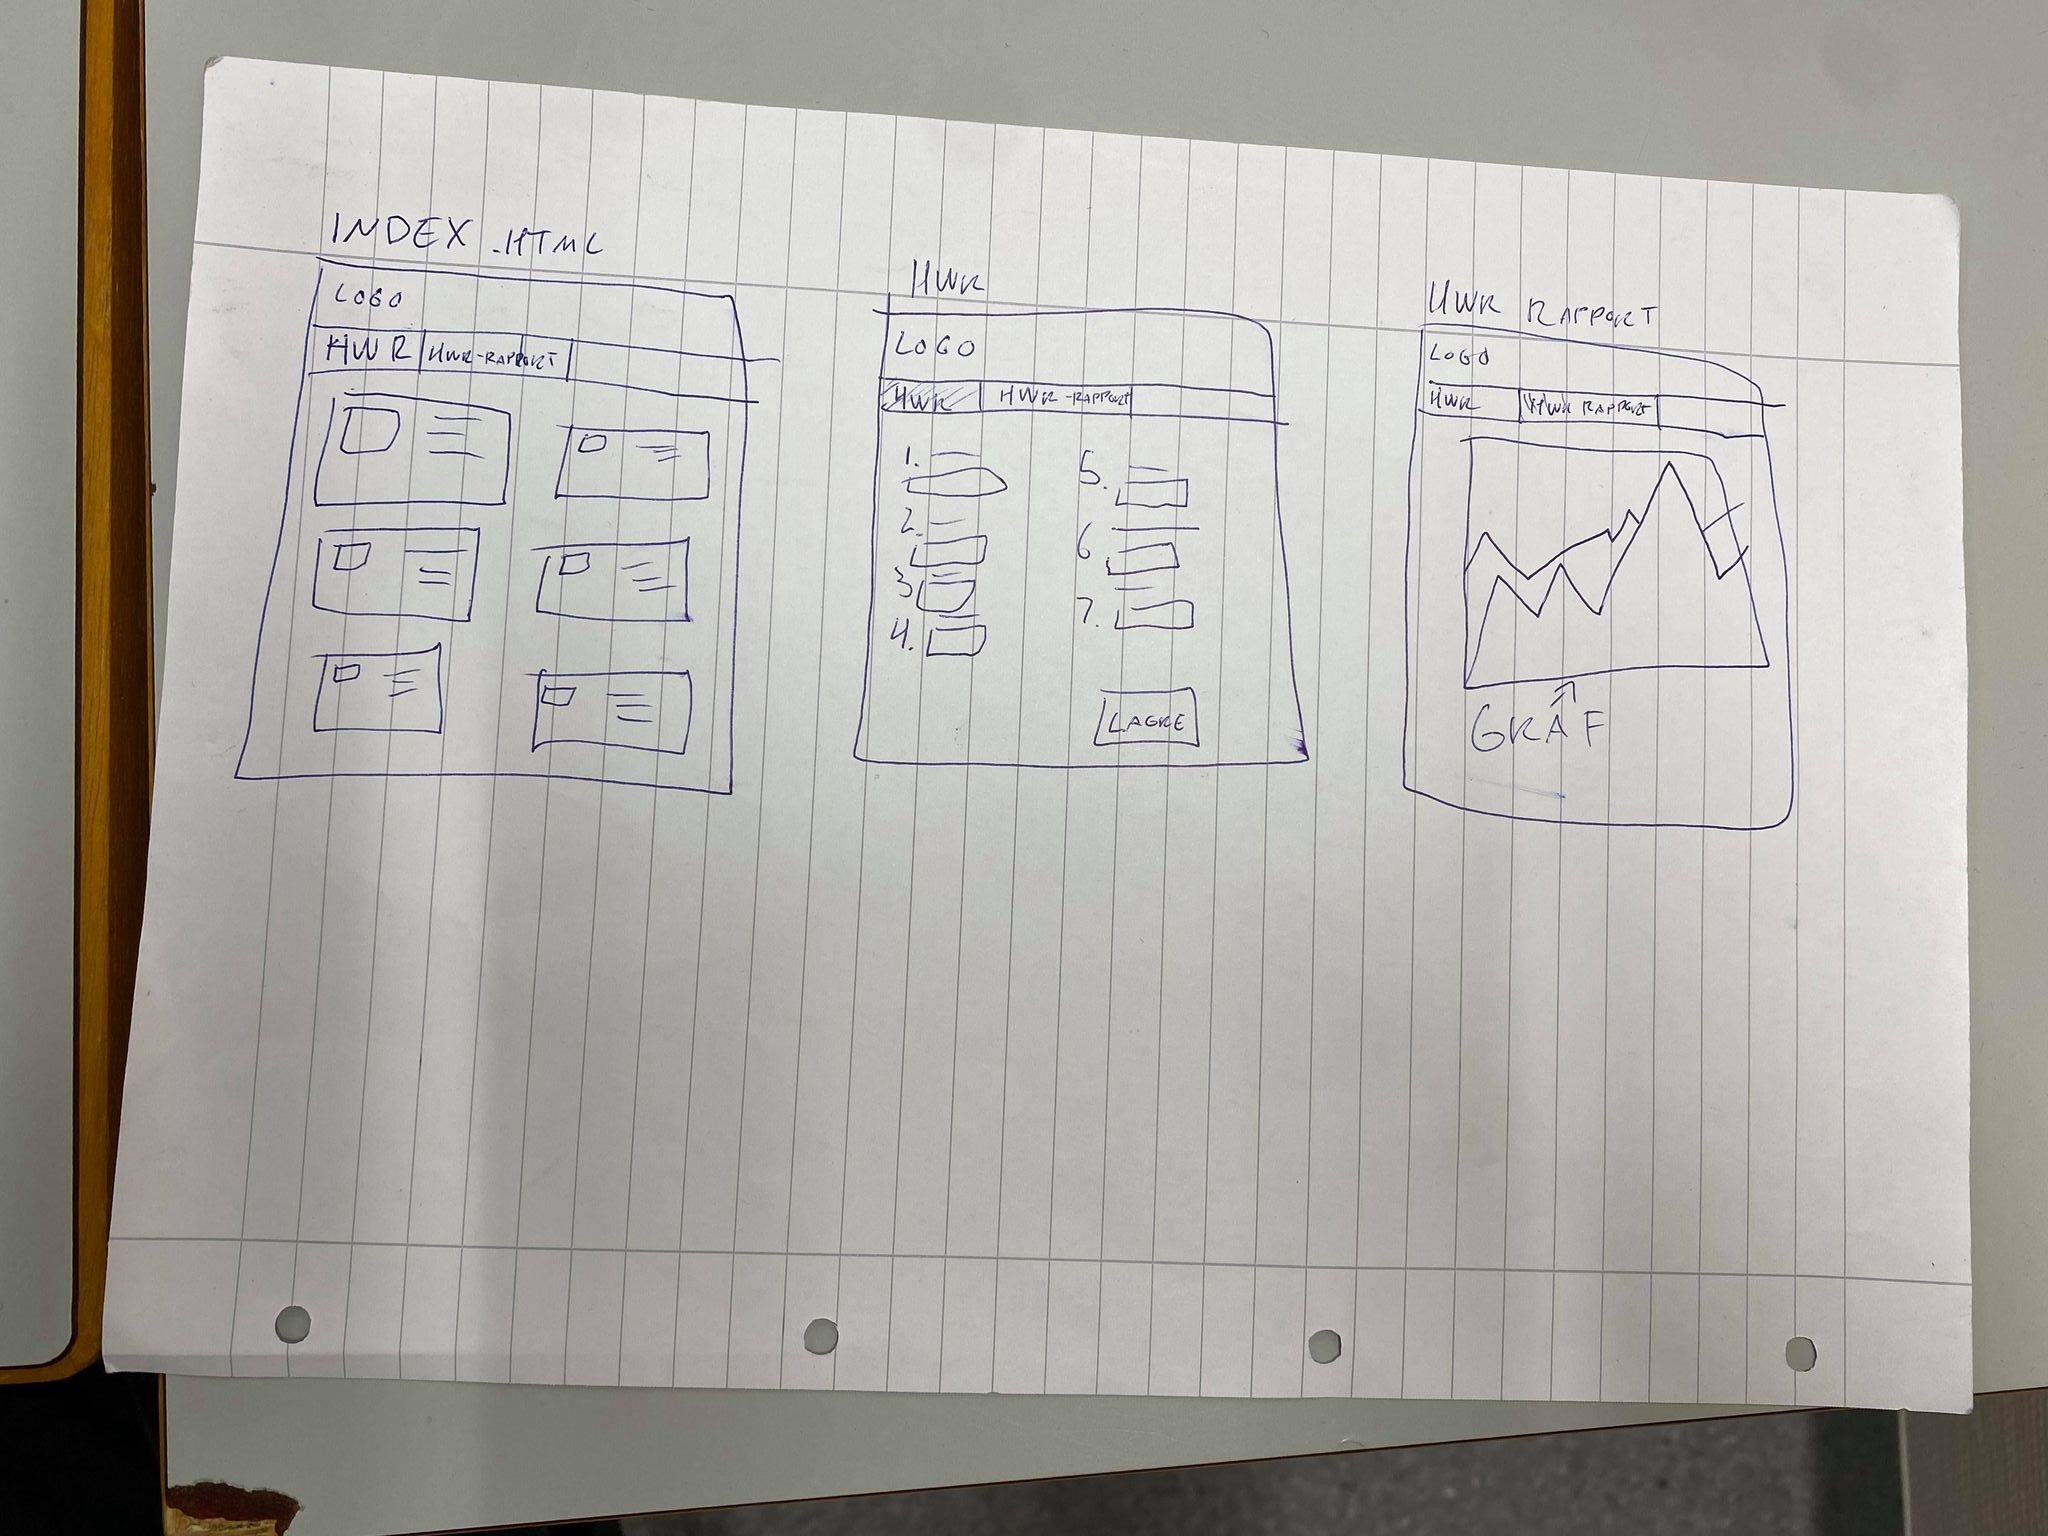 INDEX.HTML
LOGO
HWR HWR-RAPPORT
HWR
LOGO
HWR HWR-RAPPORT
1.
2.
3
4.
5.
6
7.
LAGRE
HWR RAPPORT
LOGO
HWR HWR RAPPORT
GRAF